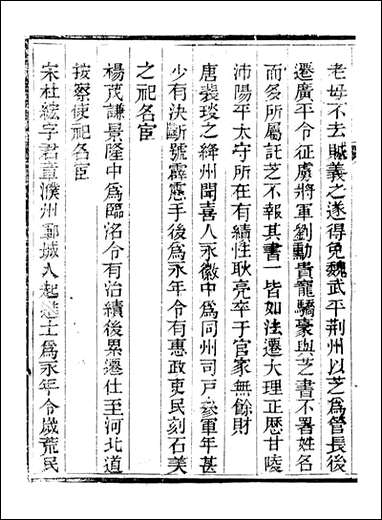 老母不去賊義之遂得免魏武平荆州以芝爲管長後
遷廣平令征虜將軍劉勳貴寵驕豪與芝書不署姓名
而多所屬託芝不報其書一皆如法遷大理正歷甘陵
沛陽平太守所在有績性耿亮卒于官家無餘財
唐裴琰之絳州聞喜人永徽中爲同州司戸參軍年甚
少有決斷號霹靂手後爲永年令有惠政吏民刻石美
之祀名臣
楊茂謙景隆中爲臨洺令有治績後累遷仕至河北道
按察使祀名臣
宋杜紘字君章濮州鄄城人起進士爲永年令歲荒民